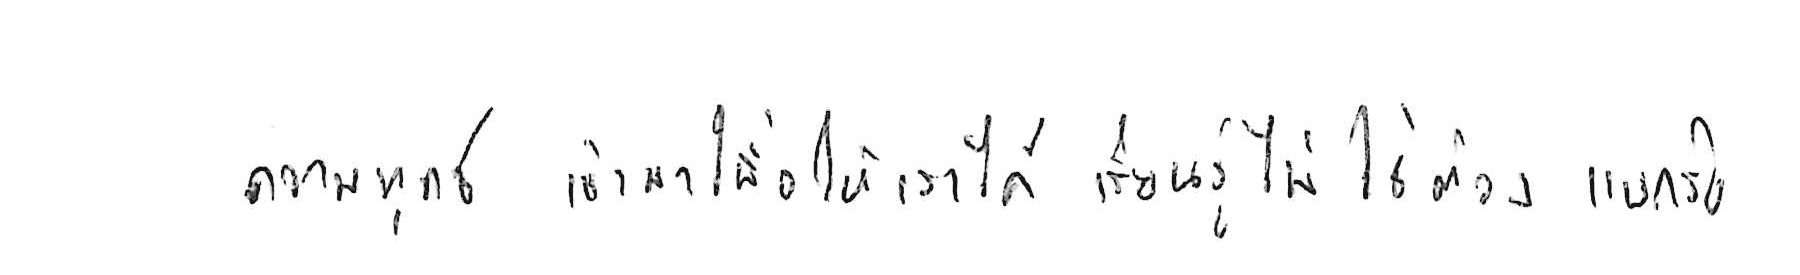 ความทุกข์ เข้ามาเพื่อให้เราได้ เรียนรู้ไม่ใช่ต้อง แบกรับ